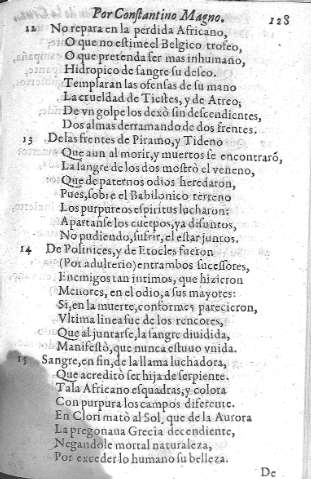 Por Constantino Magno. 128
12 No repara en la perdida Africano,
O que no estime el Belgico trofeo,
O que pretenda ser mas inhumano,
Hidropico de sangre su deseo.
Templaran las ofensas de su mano
La crueldad de Tiestes, y de Atreo;
De vn golpe los dexò sin descendientes,
Dos almas derramando de dos frentes.
13 De las frentes de Piramo, y Tideno
Que aun al morir, y muertos se encontrarõ,
La sangre de los dos mostrò el veneno,
Que de paternos odios heredaron,
Pues, sobre el Babilonico terreno
Los purpureos espiritus lucharon:
Apartanse los cuerpos, ya difuntos,
No pudiendo, sufrir, el estar juntos.
14 De Polinices, y de Etocles fueron
(Por adulterio) entrambos sucessores,
Enemigos tan intimos, que hizieron
Menores, en el odio, a sus mayores:
Si, en la muerte, conformes parecieron,
Vltima linea fue de los rencores,
Que al juntarse, la sangre diuidida,
Manifestò, que nunca estuuo vnida.
15 Sangre, en fin, de la llama luchadora,
Que acreditò ser hija de serpiente.
Tala Africano esquadras, y colora
Con purpura los campos diferente.
En Clori matò al Sol, que de la Aurora
La pregonaua Grecia decendiente,
Negandole mortal naturaleza,
Por exceder lo humano su belleza.
De